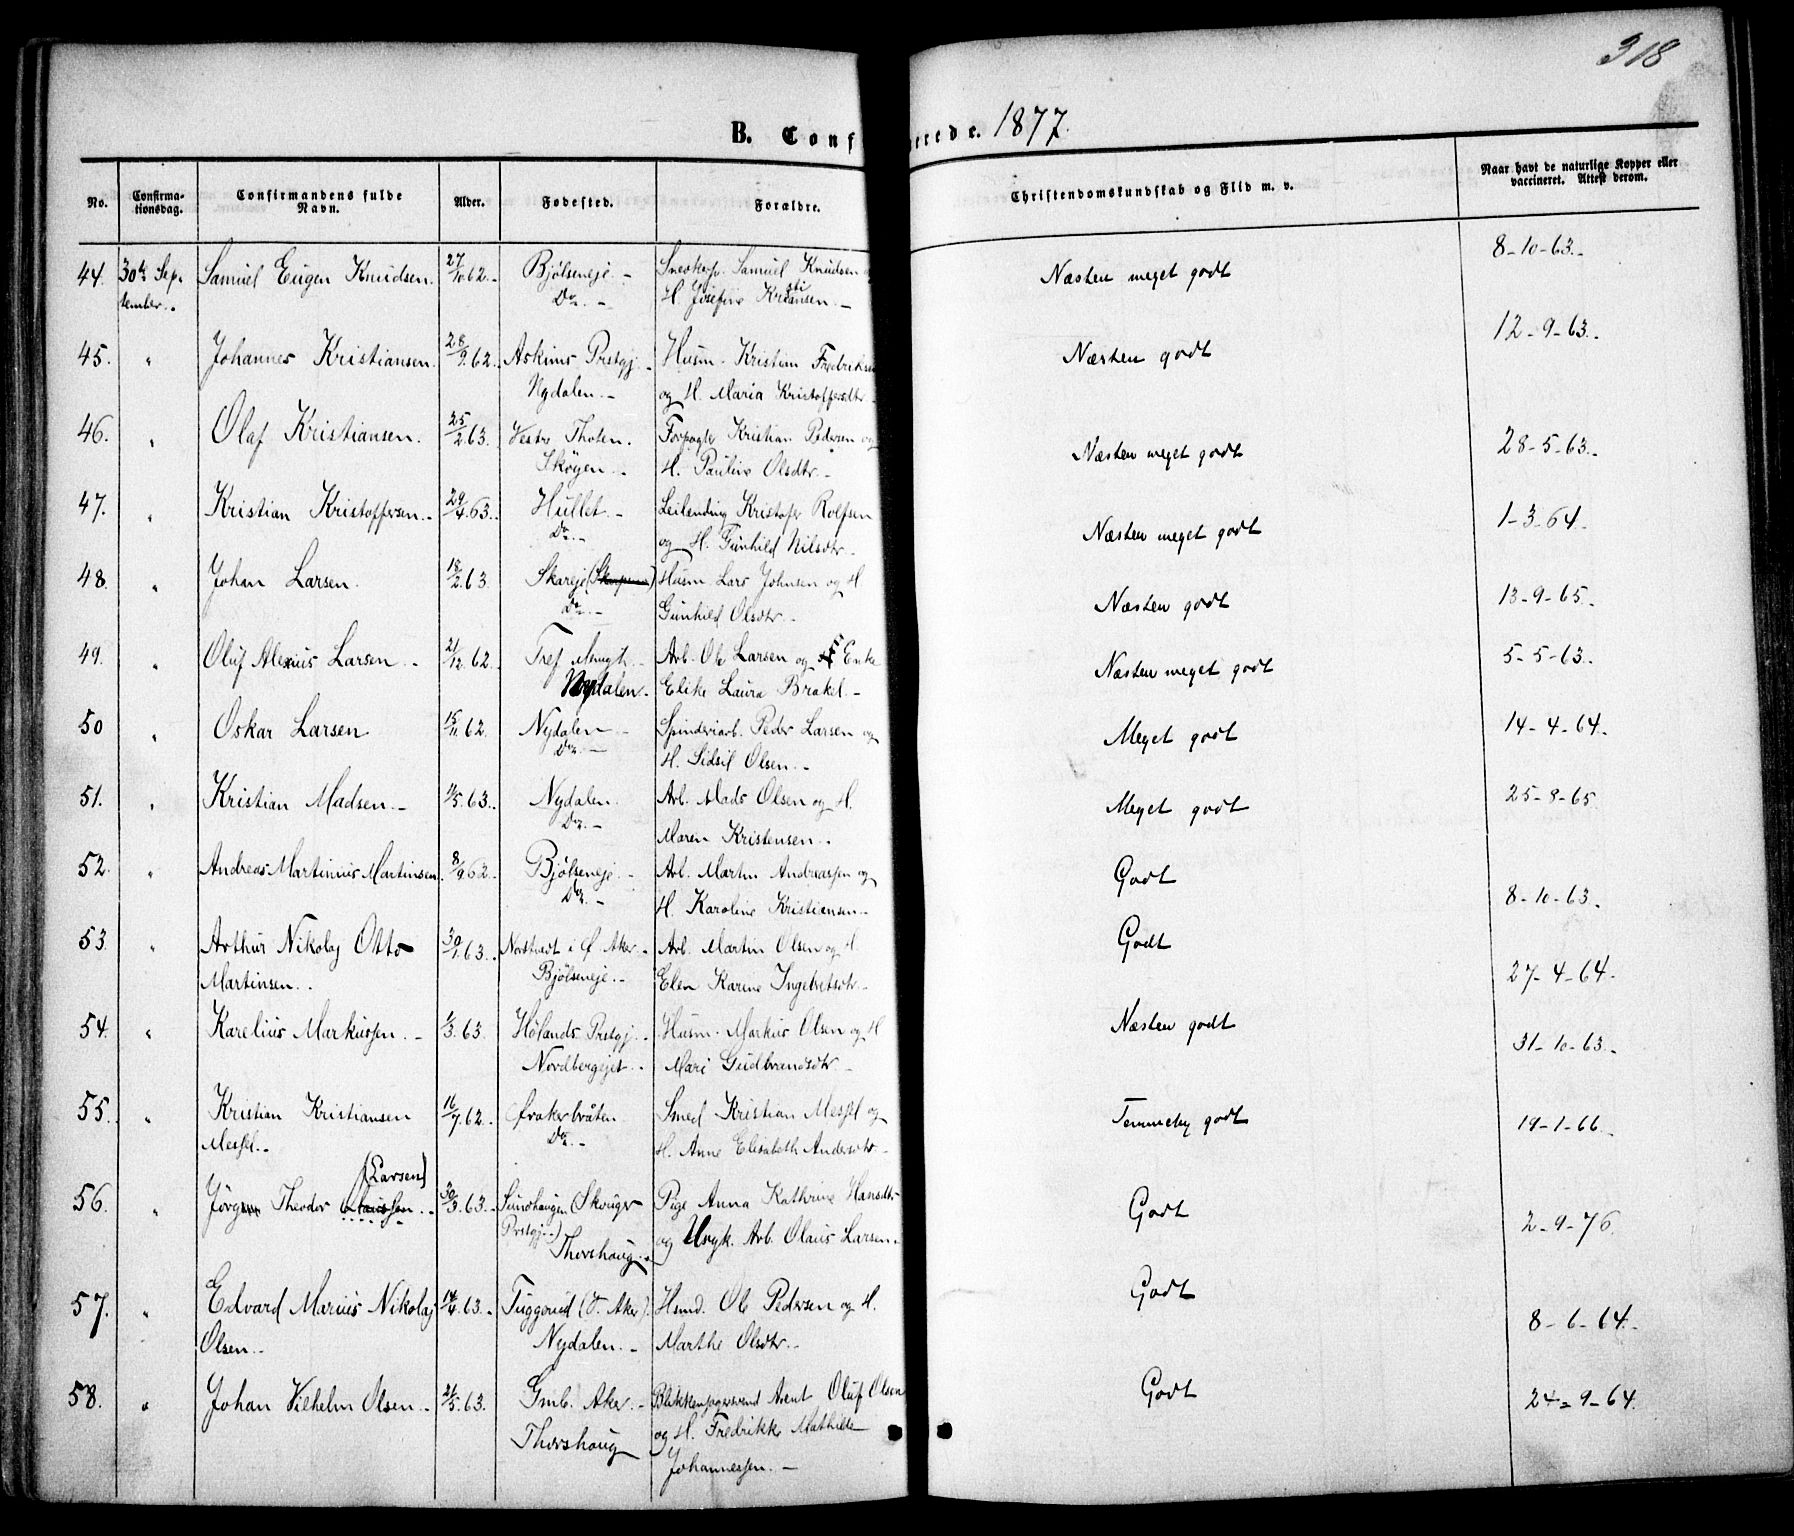 318
B. Conf erede. 1877.
No. Confirma-tionsdag. Confirmandens fulde Navn. Alder. Fødested. Forældre. Christendomskundskab og Flid m. v. Naar havt de naturlige Kopper eller vaccineret. Attest derom.
44. 30te Sep- Samuel Eugen Knudsen. 27/10 62. Bjølseneje. Samuel Knudsen Næsten meget godt 8-10-63.
tember. Do. H. Josefine Kristiansen.
45. " Johannes Kristiansen. 28/9 62. Askims Prstgj. Husm. Kristian Fredriksen Næsten godt 12-9-63.
Nydalen. og H. Maria Kristoffersdtr.
46. " Olaf Kristiansen. 25/2 63. Vestre Thoten. Forpagter Kristian Pedersen og Næsten meget godt 28-5-63.
Skøyen. H. Pauline Olsdtr.
47. " Kristian Kristoffersen. 29/4 63. Hullet. Leilending Kristofer Rolfsen Næsten meget godt 1-3-64.
Do. og H. Gunhild Nilsdtr.
48. " Johan Larsen. 18/2 63. Skareje Husm. Lars Johnsen og H. Næsten godt 13-9-65.
Do. Gunhild Olsdtr.
49. " Oluf Alexius Larsen. 21/12 62. Arb. Ole Larsen og Enke Næsten meget godt 5-5-63.
Nydalen. Elike Laura Brakel.
50 " Oskar Larsen 15/11 62. Nydalen Spinderiarb. Peder Larsen og Meget godt 14-4-64.
Do. H. Sidsil Olsen.
51. " Kristian Madsen. 11/5 63. Nydalen. Arb. Mads Olsen og H. Meget godt 25-8-65
Do. Maren Kristensen.
52. " Andreas Martinius Martinsen. 8/9 62. Bjølseneje. Arb. Martin Andreassen og Godt 8-10-63.
Do. H. Karoline Kristiansen.
53. " Arthur Nikolaj Otto 30/1 63. Nordstrand i Ø. Aker. Arb. Martin Olsen og H. Godt 27-4-64.
Martinsen. Bjølseneje. Elen Karine Ingebretsdtr.
54. " Karelius Markussen. 1/3 63. Hølands Prstgj. Husm. Markus Olsen og H. Næsten godt 31-10-63.
Nordbergejet. Mari Gudbrandsdtr.
55. " Kristian Kristiansen 16/7 62. Øvakerbråten Smed Kristian Messel og Temmelig godt 19-1-66.
Messel. Do. H. Anne Elisabeth Andersdtr.
(Larsen)
56. " Jørgen Theodor Olaussen. 30/3 63. Sundhaugen (Skouger Pige Anna Kathrine Hansdtr Godt 2-9-76.
Prstgj.) Thorshoug. og Ungk. Arb. Olaus Larsen.
57. " Edvard Marius Nikolaj 14/4 63. Tuggerud (V. Aker). Hsmd. Ole Pedersen og H. Godt 8-6-64.
Olsen. Nydalen. Marthe Olsdtr.
58. " Johan Vilhelm Olsen. 21/5 63. Gmb. Aker. Blikkenslagersvend Arent Oluf Olsen Godt 24-9-64.
Thorshoug og H. Fredrikke Mathilde
Johannessen.